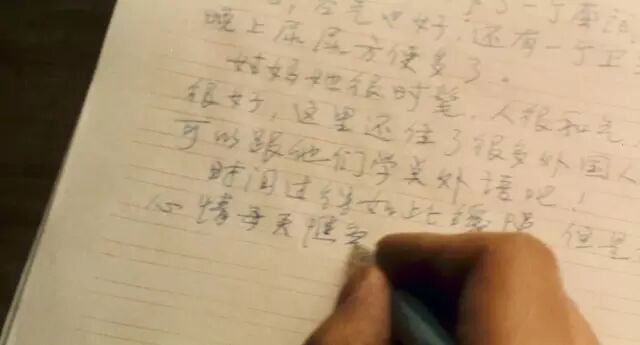 空气也好,
了一个
晚上尿尿方便多了。 还有一个卫
姑妈她很时髦,人很和气,
很好,这里还住了很多外国人
可以跟他们学点外语吧!
时间过得如此缓慢,但是
心情每天随